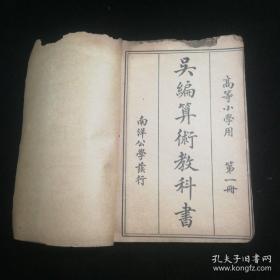 高等小學用　第一冊
吳編算術教科書
南洋公學發行
孔夫子旧书网